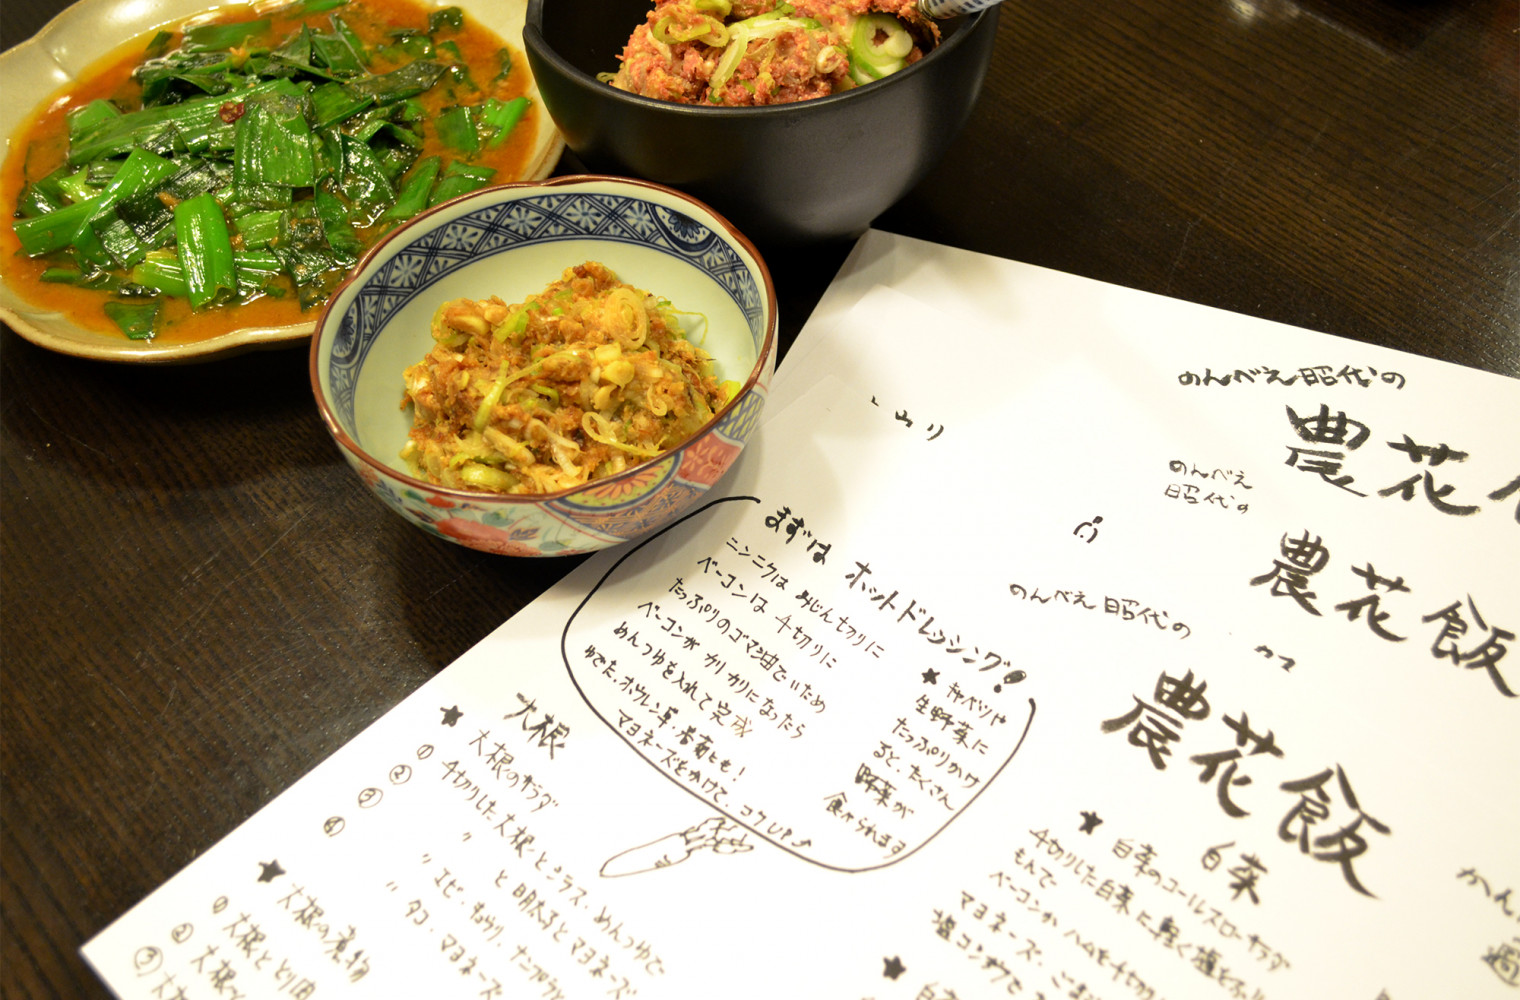 のんべえ昭代の
農花
のんべえ
昭代の
農花飯
のんべえ昭代の
農花飯
白菜
まずは ホットドレッシング!
ニンニクは みじん切りに
ベーコンは 千切りに
たっぷりのゴマ油でいため
ベーコンが カリカリになったら
めんつゆを入れて完成
ゆでた、ホウレン草・春菊とも!
マヨネーズをかけて、コクUP
★ キャベツや
生野菜に
たっぷりかけ
ると、たくさん
野菜が
食べられます
大根
★ 大根のサラダ
① 千切りした大根とシラス・めんつゆで
② 〃 と明太子とマヨネーズ
③ 〃 エビ・キュウリ・ナンプラー
④ 〃 タコ・マヨネーズ
★ 大根の煮物
① 大根ととり肉
② 大根
③ 大根
★ 白菜のコールスローサラダ
千切りした白菜に軽く塩をふり
もんで
ベーコンかハムを千切り
マヨネーズ・ごま
塩コンブで
★ 白